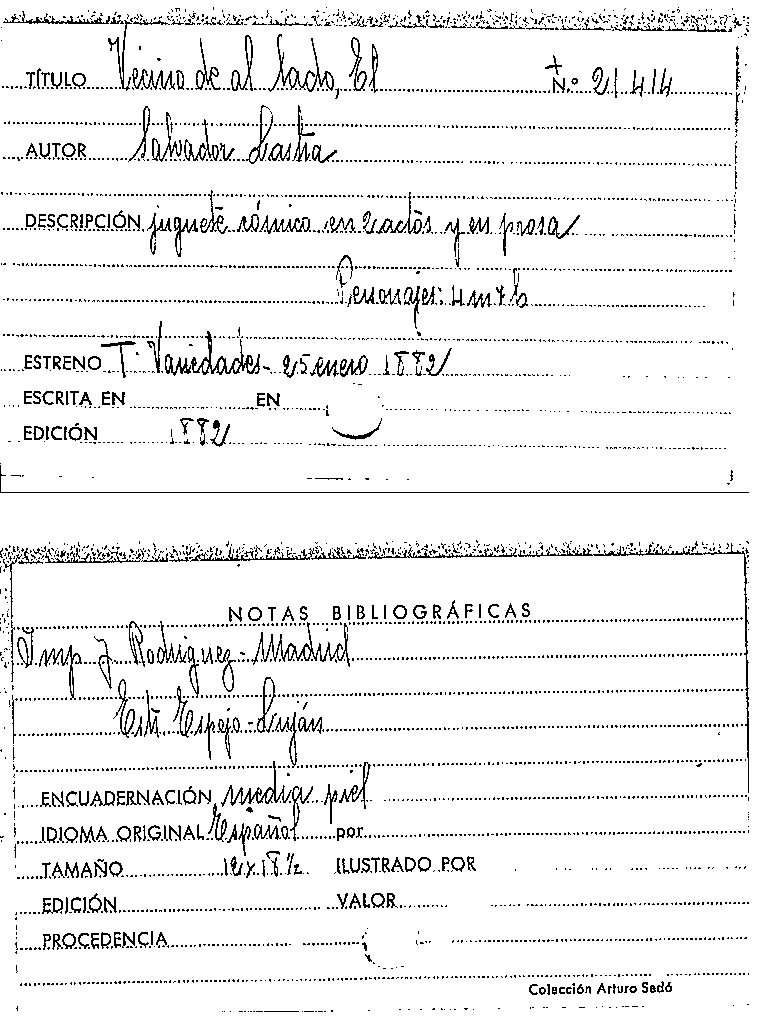 TÍTULO Vecino de al lado, El N.º 21414
AUTOR Salvador Lastra
DESCRIPCIÓN juguete cómico en 2 actos y en prosa
Personajes: 4 m 7 h
ESTRENO T. Variedades - 25 enero 1882
ESCRITA EN EN
EDICIÓN 1882
NOTAS BIBLIOGRÁFICAS
Imp J. Rodriguez - Madrid
Estr. Espejo - Luján
ENCUADERNACIÓN media piel
IDIOMA ORIGINAL Español por
TAMAÑO 12 x 18 ½ ILUSTRADO POR
EDICIÓN VALOR
PROCEDENCIA
Colección Arturo Sedó